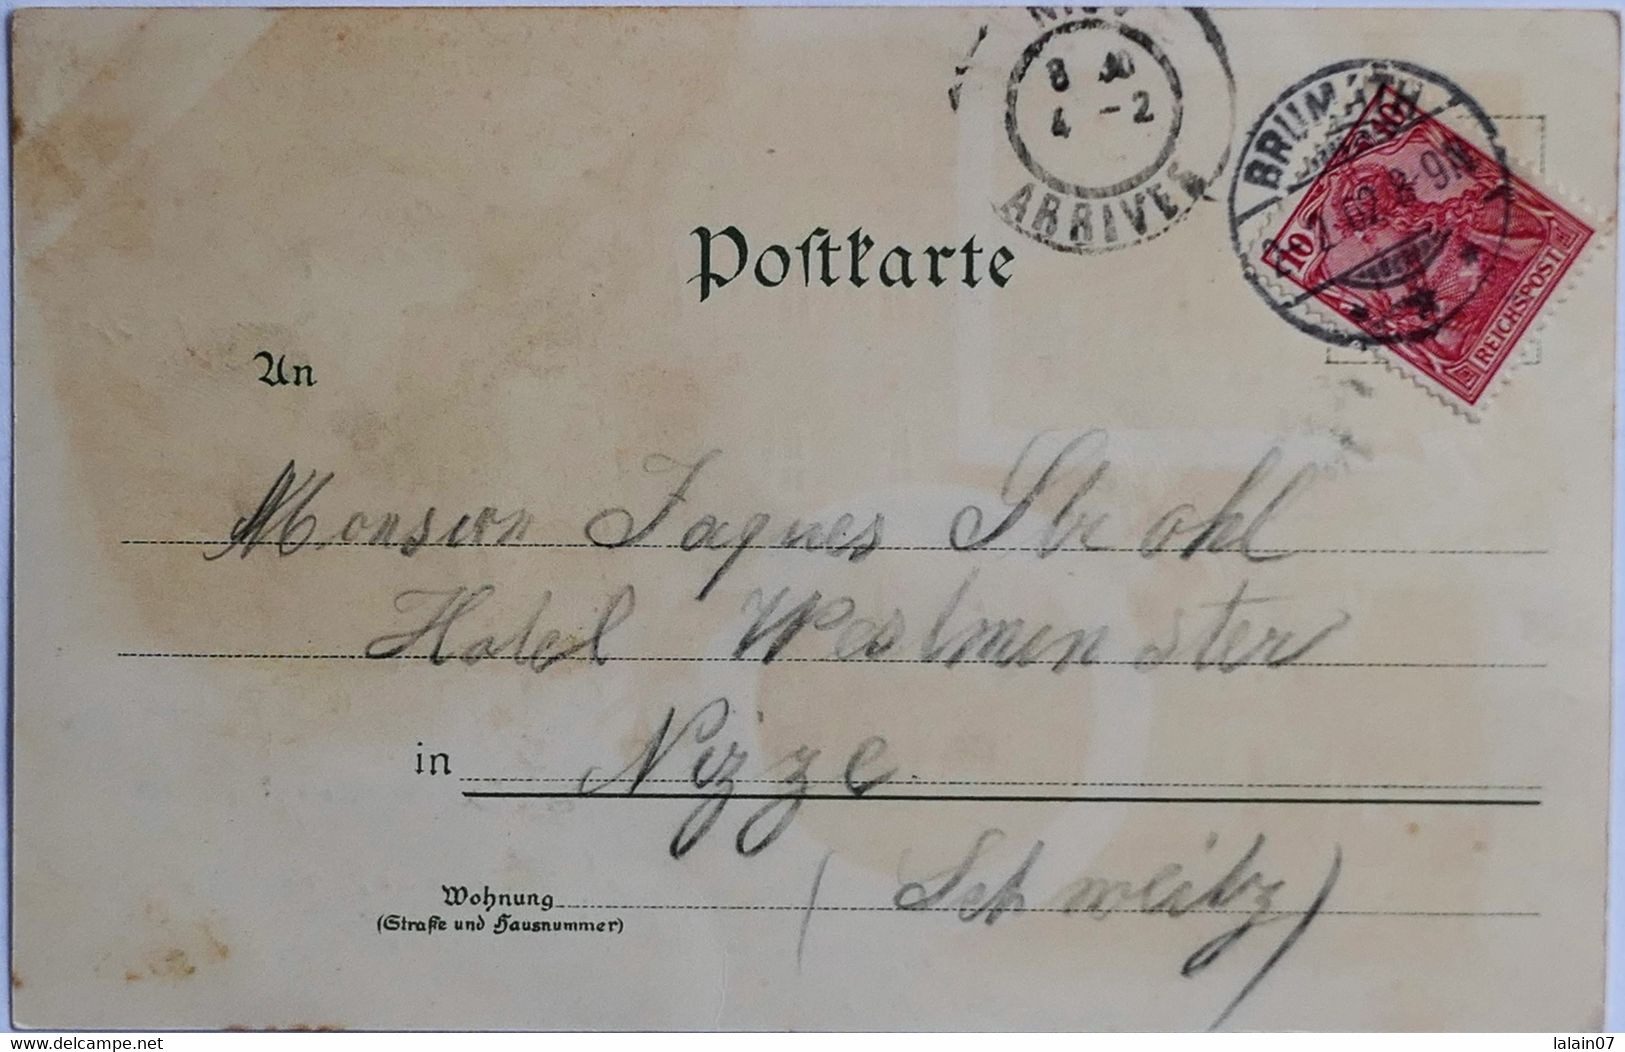 8 30
4 - 2
ARRIVEE
BRUMATH
02 8-9N
10
REICHSPOST
Postkarte
An
Monsieur Jaques Strohl
Hotel Westminster
in Nizze
(Schweitz)
Wohnung
(Straße und Hausnummer)
www.delcampe.net
lalain07